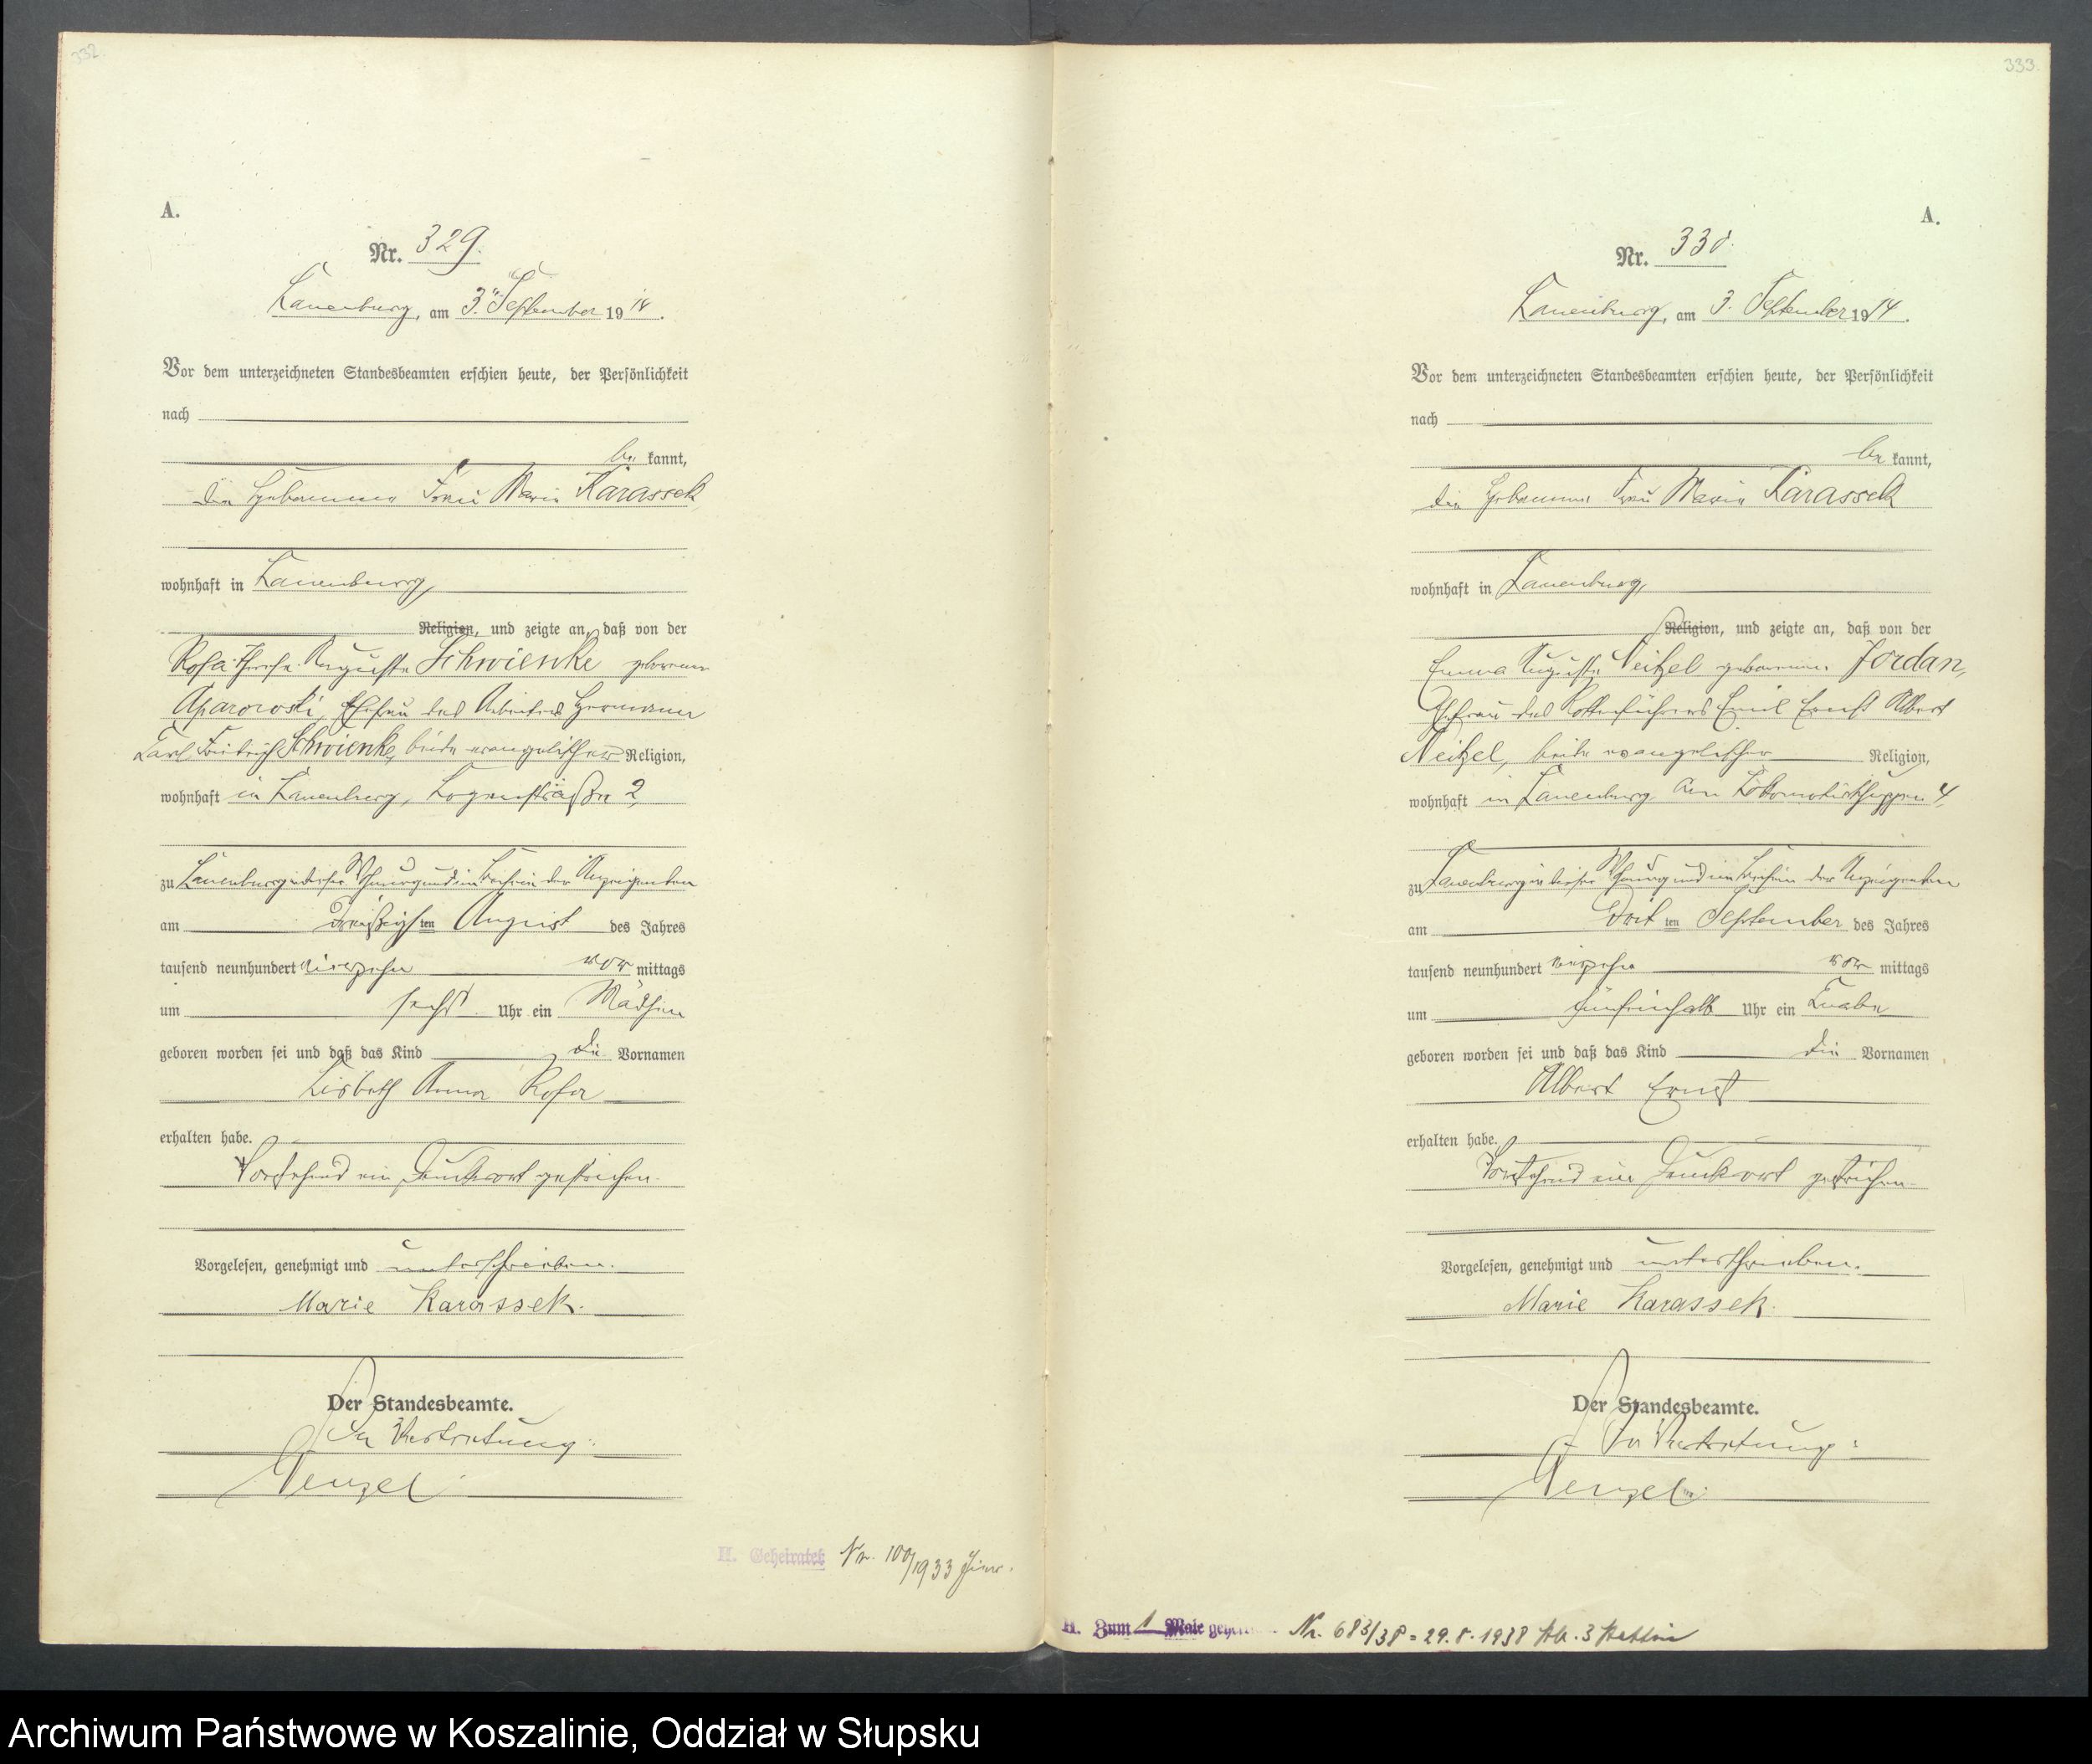 332.
A.
Nr. 329.
Lauenburg, am 3. September 1914.
Vor dem unterzeichneten Standesbeamten erschien heute, der Persönlichkeit
nach
be kannt,
die Hebamme Frau Marie Karassek
wohnhaft in Lauenburg,
Religion, und zeigte an, daß von der
Rosa Therese Auguste Schwienke geborenen
Aparowski, Ehefrau des Arbeiters Hermann
Carl Friedrich Schwienke, beide evangelischer Religion,
wohnhaft in Lauenburg, Logenstraße 2,
zu Lauenburg in dieser Wohnung und im Beisein der Anzeigenden
am dreißigsten August des Jahres
tausend neunhundert vierzehn vor mittags
um sechs Uhr ein Mädchen
geboren worden sei und daß das Kind die Vornamen
Lisbeth Anna Rosa
erhalten habe.
Vorstehend ein Druckwort gestrichen.
Vorgelesen, genehmigt und unterschrieben.
Marie Karassek.
Der Standesbeamte.
In Vertretung:
Wenzel
H. Geheiratet Nr. 100/1933 hier.
333.
A.
Nr. 330.
Lauenburg, am 3. September 1914.
Vor dem unterzeichneten Standesbeamten erschien heute, der Persönlichkeit
nach
be kannt,
die Hebamme Frau Marie Karassek
wohnhaft in Lauenburg,
Religion, und zeigte an, daß von der
Emma Auguste Neitzel geborenen Jordan,
Ehefrau des Rottenführers Emil Ernst Albert
Neitzel, beide evangelischer Religion,
wohnhaft in Lauenburg Am Lokomotivschuppen 4,
zu Lauenburg in dieser Wohnung und im Beisein der Anzeigenden
am drit ten September des Jahres
tausend neunhundert vierzehn vor mittags
um fünfeinhalb Uhr ein Knabe
geboren worden sei und daß das Kind die Vornamen
Albert Ernst
erhalten habe.
Vorstehend ein Druckwort gestrichen.
Vorgelesen, genehmigt und unterschrieben.
Marie Karassek.
Der Standesbeamte.
In Vertretung:
Wenzel
H. Zum 1 Male Nr. 683/38 = 29.8.1938 3 Stettin
Archiwum Państwowe w Koszalinie, Oddział w Słupsku